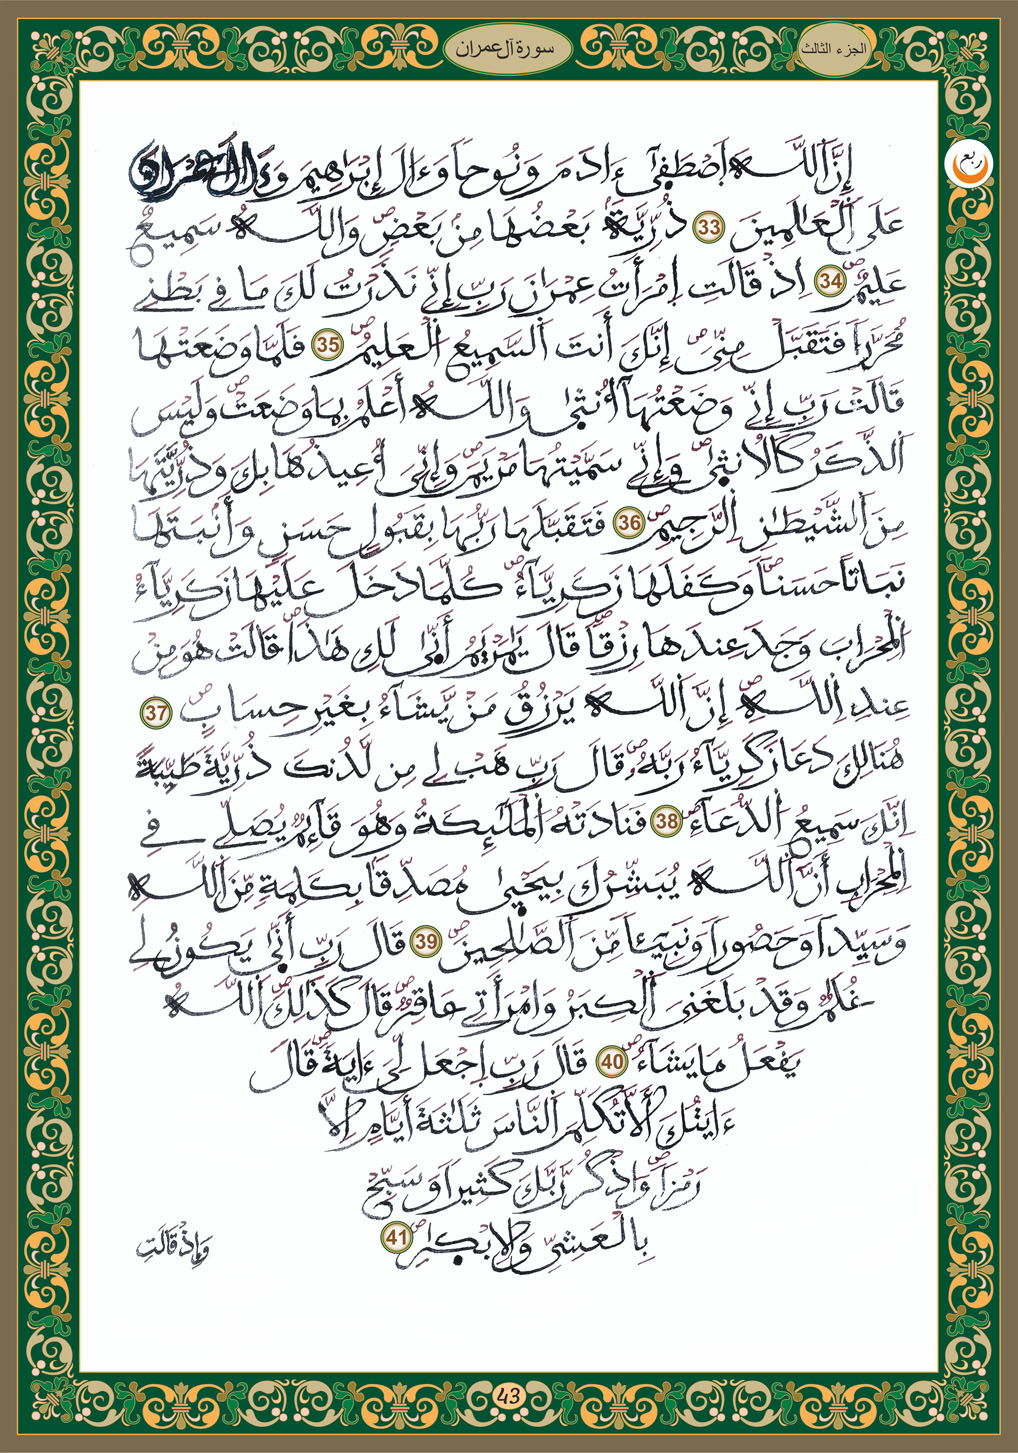 الجزء الثالث
سورة آل عمران
ربع
إِنَّ اَللَّهَ اَصْطَفَىٰٓ ءَادَمَ وَنُوحاً وَءَالَ إِبْرَٰهِيمَ وَءَالَ عِمْرَٰنَ
عَلَى اَلْعَٰلَمِينَ 33 ذُرِّيَّةَۢ بَعْضُهَا مِنۢ بَعْضٖ وَاللَّهُ سَمِيعٌ
عَلِيمٌ 34 اِذْ قَالَتِ اِمْرَأَتُ عِمْرَٰنَ رَبِّ إِنِّي نَذَرْتُ لَكَ مَا فِي بَطْنِي
مُحَرَّراً فَتَقَبَّلْ مِنِّيٓ إِنَّكَ أَنتَ اَلسَّمِيعُ اُلْعَلِيمُ 35 فَلَمَّا وَضَعَتْهَا
قَالَتْ رَبِّ إِنِّي وَضَعْتُهَآ أُنثَىٰ وَاللَّهُ أَعْلَمُ بِمَا وَضَعَتْ وَلَيْسَ
اَلذَّكَرُ كَالْأُنثَىٰ وَإِنِّي سَمَّيْتُهَا مَرْيَمَ وَإِنِّيَ أُعِيذُهَا بِكَ وَذُرِّيَّتَهَا
مِنَ اَلشَّيْطَٰنِ اِلرَّجِيمِ 36 فَتَقَبَّلَهَا رَبُّهَا بِقَبُولٍ حَسَنٍ وَأَنۢبَتَهَا
نَبَاتاً حَسَناً وَكَفَلَهَا زَكَرِيَّآءُ كُلَّمَا دَخَلَ عَلَيْهَا زَكَرِيَّآءُ
اُلْمِحْرَابَ وَجَدَ عِندَهَا رِزْقاً قَالَ يَٰمَرْيَمُ أَنَّىٰ لَكِ هَٰذَا قَالَتْ هُوَ مِنْ
عِندِ اِللَّهِ إِنَّ اَللَّهَ يَرْزُقُ مَنْ يَّشَآءُ بِغَيْرِ حِسَابٍ 37
هُنَالِكَ دَعَا زَكَرِيَّآءُ رَبَّهُۥ قَالَ رَبِّ هَبْ لِي مِن لَّدُنكَ ذُرِّيَّةً طَيِّبَةً
اِنَّكَ سَمِيعُ اُلدُّعَآءِ 38 فَنَادَتْهُ اُلْمَلَٰٓئِكَةُ وَهُوَ قَآئِمٌ يُصَلِّي فِي
اِلْمِحْرَابِ أَنَّ اَللَّهَ يُبَشِّرُكَ بِيَحْيَىٰ مُصَدِّقاً بِكَلِمَةٍ مِّنَ اَللَّهِ
وَسَيِّداً وَحَصُوراً وَنَبِيٓـٔاً مِّنَ اَلصَّٰلِحِينَ 39 قَالَ رَبِّ أَنَّىٰ يَكُونُ لِي
غُلَٰمٌ وَقَدْ بَلَغَنِيَ اَلْكِبَرُ وَامْرَأَتِي عَاقِرٌ قَالَ كَذَٰلِكَ اَللَّهُ
يَفْعَلُ مَا يَشَآءُ 40 قَالَ رَبِّ اِجْعَل لِّيَ ءَايَةً قَالَ
ءَايَتُكَ أَلَّا تُكَلِّمَ اَلنَّاسَ ثَلَٰثَةَ أَيَّامٍ اِلَّا
رَمْزاً وَاذْكُر رَّبَّكَ كَثِيراً وَسَبِّحْ
بِالْعَشِيِّ وَالْإِبْكَٰرِ 41
وَإِذْ قَالَتِ
43